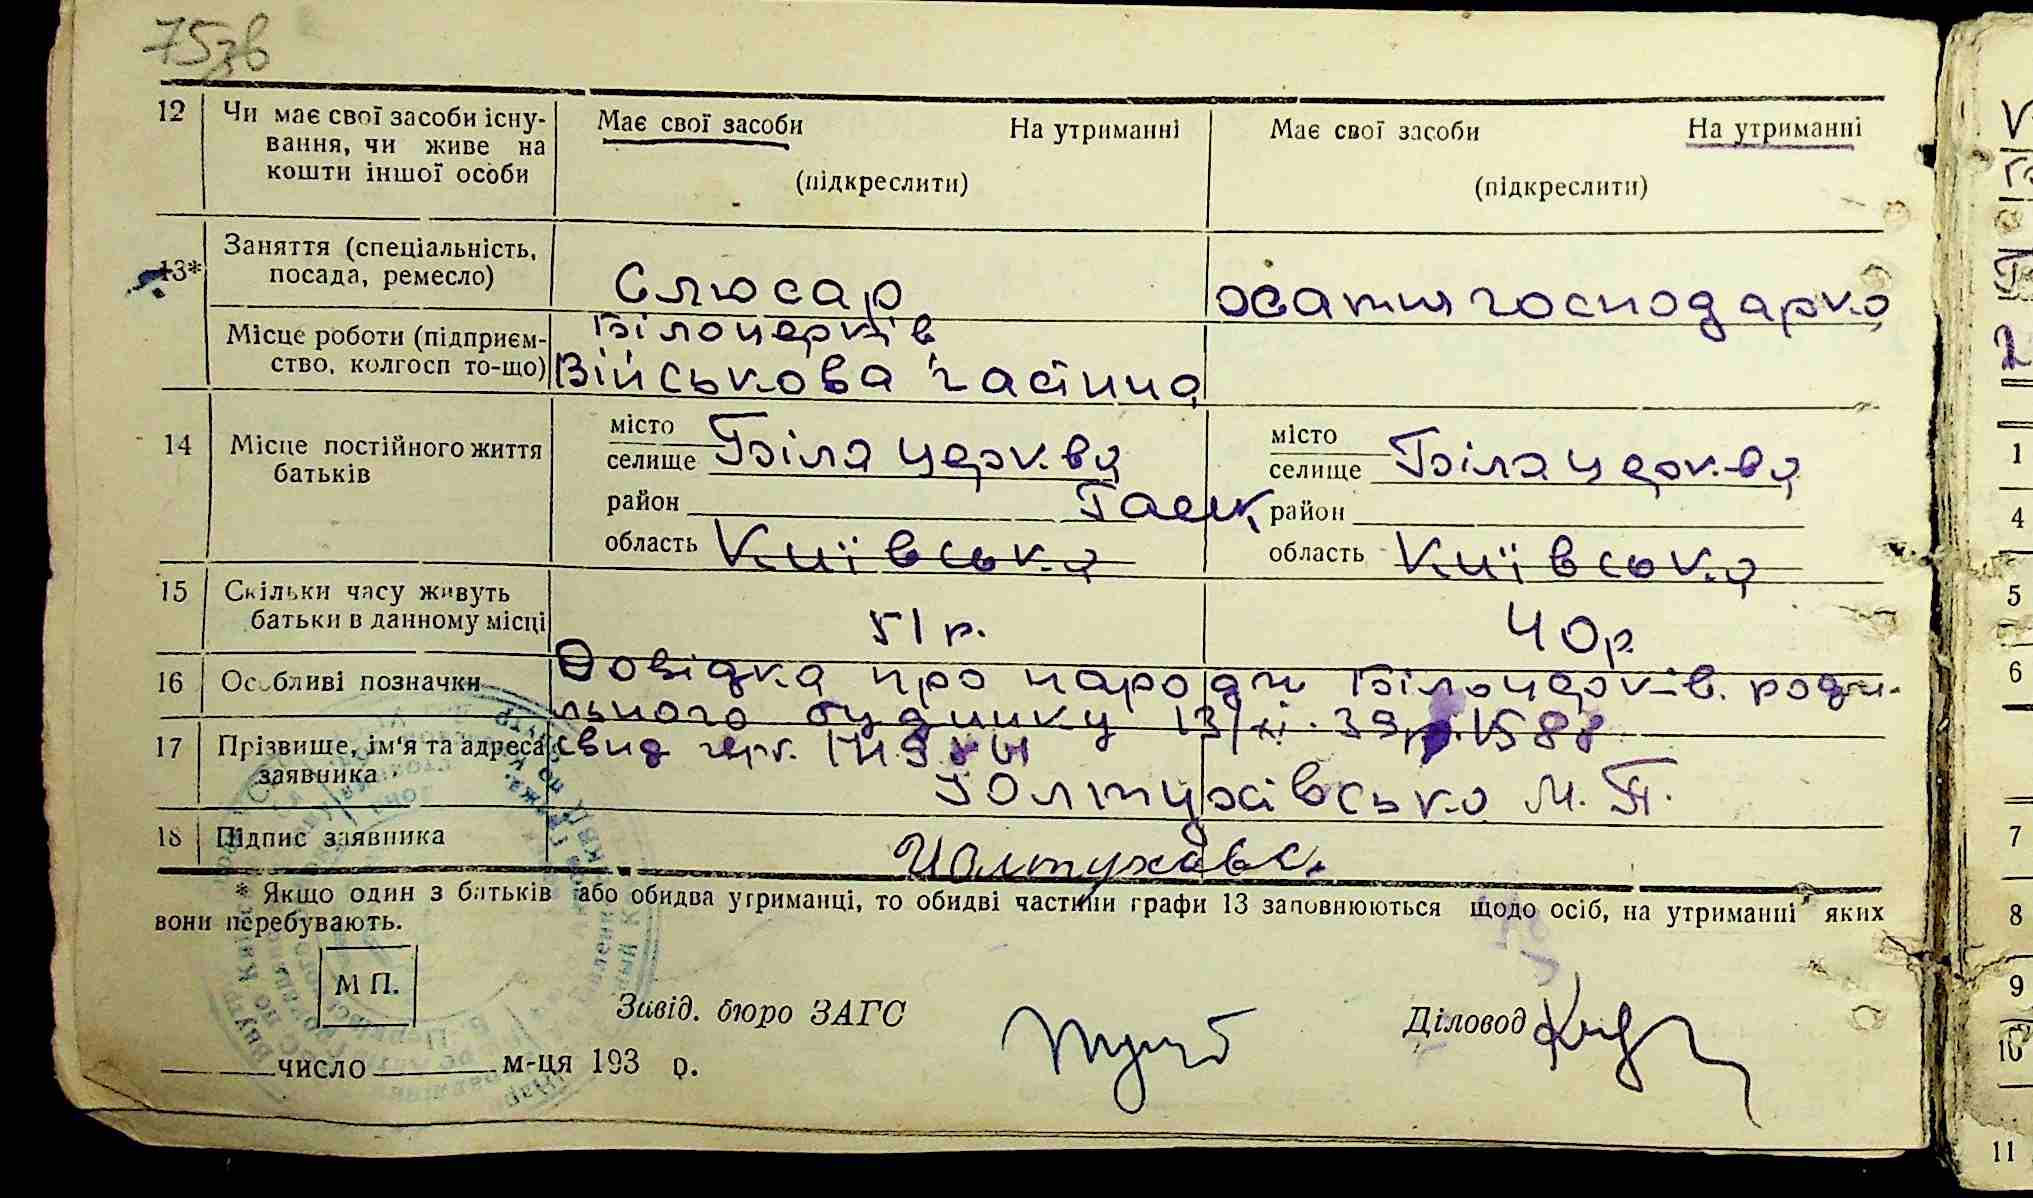 75зв
12 Чи має свої засоби існу-
вання, чи живе на
кошти іншої особи
Має свої засоби На утриманні
(підкреслити)
Має свої засоби На утриманні
(підкреслити)
13* Заняття (спеціальність,
посада, ремесло)
Слюсар
хатня господарка
Місце роботи (підприєм-
ство, колгосп то-що)
Білоцерків
Військова частина
14 Місце постійного життя
батьків
місто
селище Біла церква
район Гаєк
область Київська
місто
селище Біла церква
район
область Київська
15 Скільки часу живуть
батьки в данному місці
51 р.
40 р
16 Особливі позначки
Довідка про народж Білоцерків. роди-
льного будинку 13/XI. 39 р. 1588
17 Прізвище, ім'я та адреса
заявника
свид
Юлтухівська М. П.
18 Підпис заявника
* Якщо один з батьків або обидва утриманці, то обидві частини графи 13 заповнюються щодо осіб, на утриманні яких
вони перебувають.
М П.
Завід. бюро ЗАГС
Діловод
число м-ця 193 р.
1
4
5
6
7
8
9
10
11